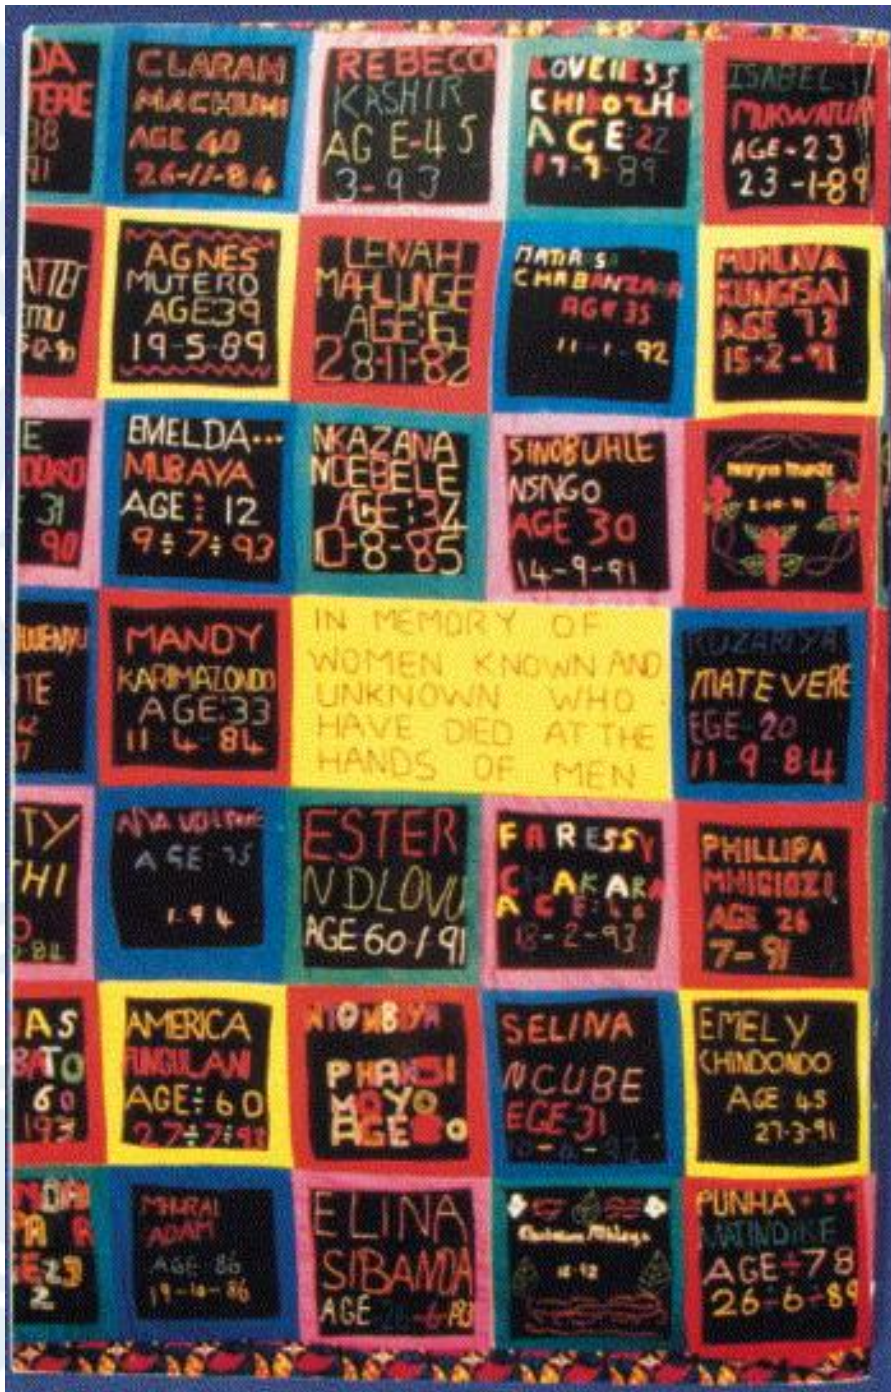 CLARAH
MACHUMI
AGE 40
26-11-84
REBECCA
KASHIR
AGE-45
3-93
LOVEness
CHIDOZHO
AGE:22
17-7-89
ISABEL
MUKWATURI
AGE-23
23-1-89
AGNES
MUTERO
AGE:39
19-5-89
LENAH
MAHLUNGE
AGE:6
28-11-82
AGE 35
11-1-92
AGE 73
15-2-91
EMELDA...
MUBAYA
AGE: 12
9÷7÷93
NKAZANA
NDEBELE
AGE:34
0-8-85
SINOBUHLE
NSNGO
AGE 30
14-9-91
31
90
MANDY
KARIMAZONDO
AGE:33
11 4 84
IN MEMORY OF
WOMEN KNOWN AND
UNKNOWN WHO
HAVE DIED AT THE
HANDS OF MEN
MATEVERE
EGE-20
11 9 84
TY
THI
AGE 75
1-94
ESTER
NDLOVU
AGE 60 1 91
FARESSY
CHAKARA
18-2-93
PHILLIPA
AGE 26
7-91
AS
60
193
AMERICA
FUNGULANI
AGE÷60
PHANSI
MOYO
AGE 80
SELINA
NCUBE
EGE-31
EMELY
CHINDONDO
AGE 45
27-3-91
ADAM
AGE 86
19-10-86
ELINA
SIBANDA
AGE
PUNHA
MATINDIKE
AGE÷78
26÷6÷89